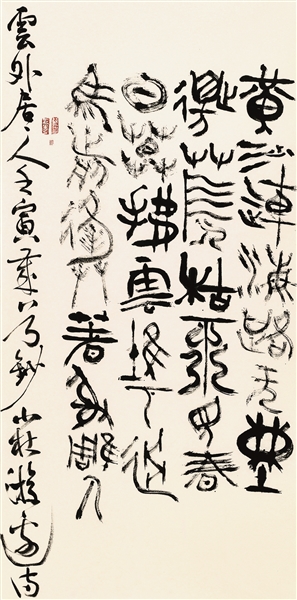 黄沙連海路无塵
邊草長枯不見春
日暮拂雲堆下過
馬前逢著射雕人
雲外居人壬寅歲八月鈔小杜游邊詩